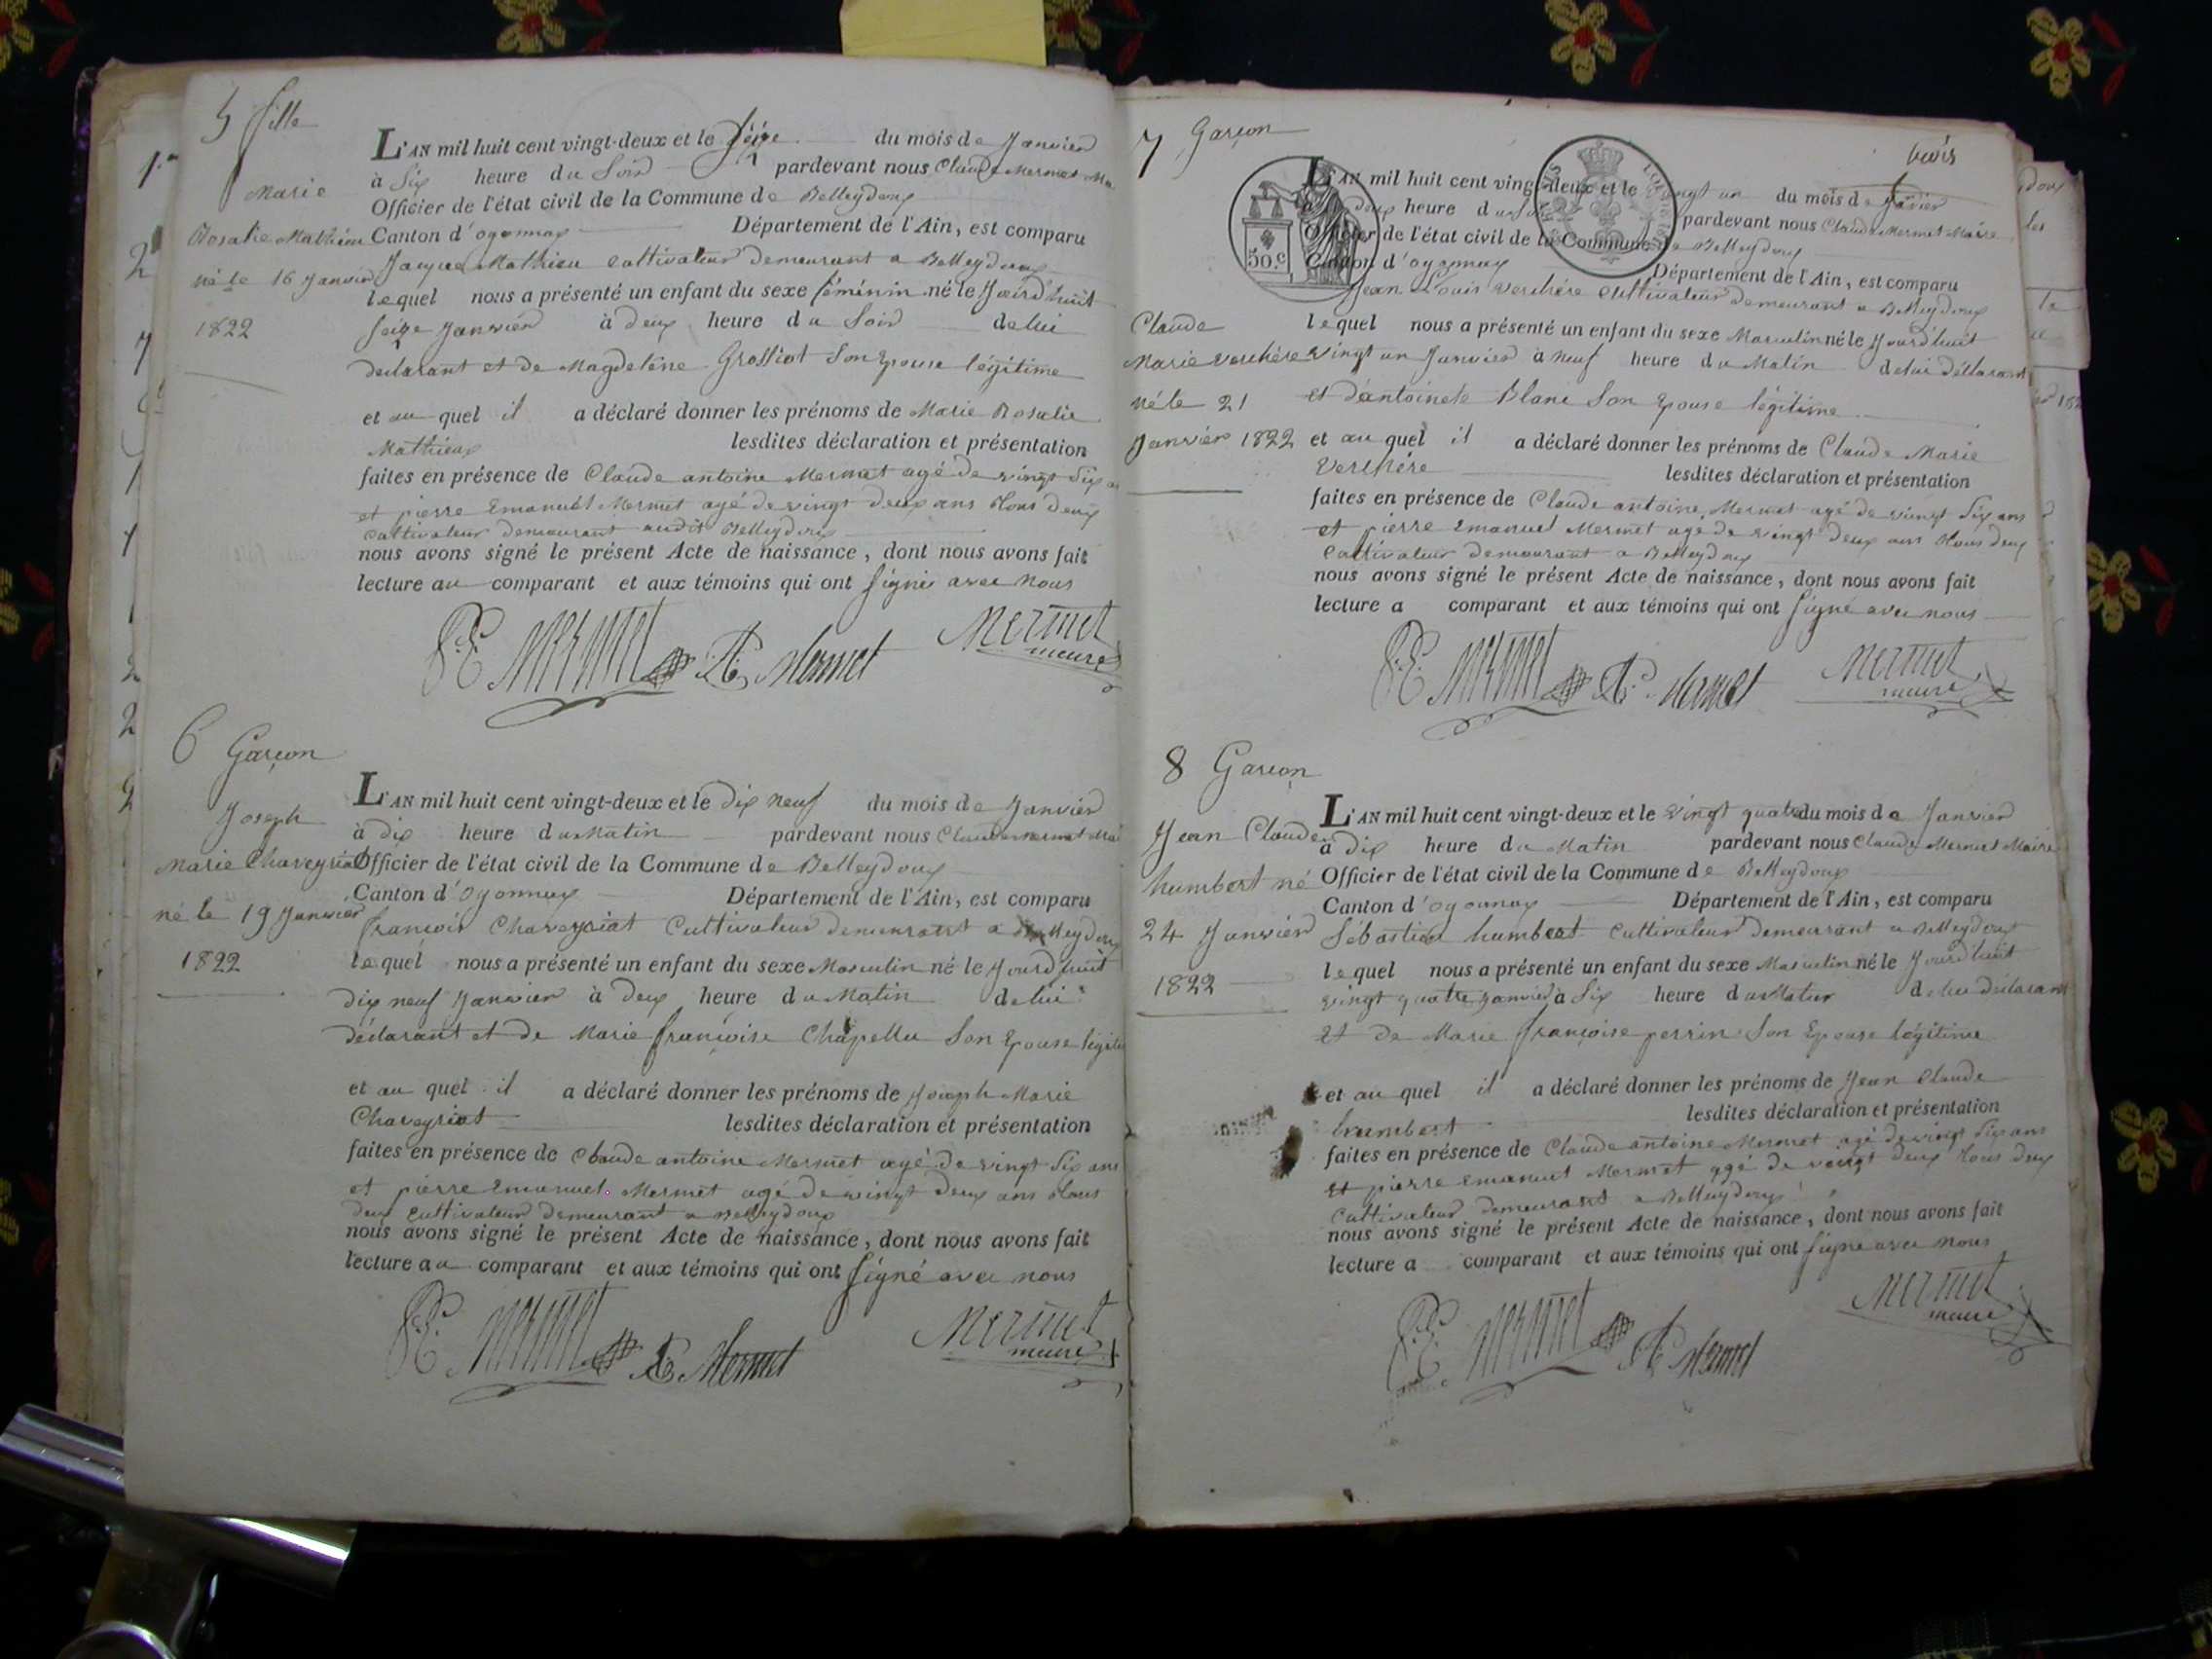 5 fille
Marie
Rosalie Mathieu
né le 16 Janvier
1822
L'AN mil huit cent vingt-deux et le Seize du mois de Janvier
à Six heure du Soir pardevant nous Claude Mermet Ma
Officier de l'état civil de la Commune de Belleydoux
Canton d'oyonnax Département de l'Ain, est comparu
Jacques Mathieu Cultivateur demeurant a Belleydoux
lequel nous a présenté un enfant du sexe féminin né le Jourd'huit
Seize Janvier à deux heure du Soir de lui
déclarant et de Magdeleine Grossiat Son Epouse légitime
et au quel il a déclaré donner les prénoms de Marie Rosalie
Mathieux lesdites déclaration et présentation
faites en présence de Claude antoine Mermet agé de vingt Six an
et pierre Emanuel Mermet agé de vingt deux ans tous deux
Cultivateur demeurant audit Belleydoux
nous avons signé le présent Acte de naissance, dont nous avons fait
lecture au comparant et aux témoins qui ont Signé avec Nous
P.E. Mermet A. Mermet Mermet
meire
6 Garçon
Joseph
Marie Chaveyriat
né le 19 Janvier
1822
L'AN mil huit cent vingt-deux et le dix neuf du mois de Janvier
à dix heure du Matin pardevant nous Claude Mermet Mai
Officier de l'état civil de la Commune de Belleydoux
Canton d'oyonnax Département de l'Ain, est comparu
françois Chaveyriat Cultivateur demeurant a Belleydoux
lequel nous a présenté un enfant du sexe Masculin né le Jourd'huit
dix neuf Janvier à deux heure du Matin de lui
déclarant et de Marie françoise Chapellu Son Epouse légiti
et au quel il a déclaré donner les prénoms de Joseph Marie
Chaveyriat lesdites déclaration et présentation
faites en présence de Claude antoine Mermet agé de vingt Six ans
et pierre Emanuel Mermet agé de vingt deux ans tous
deux Cultivateur demeurant a Belleydoux
nous avons signé le présent Acte de naissance, dont nous avons fait
lecture au comparant et aux témoins qui ont Signé avec nous
P.E. Mermet A. Mermet Mermet
meire
trois
7 Garçon
50.c
Claude
Marie Verchère
né le 21
Janvier 1822
L'AN mil huit cent vingt-deux et le vingt un du mois de Janvier
à deux heure du Soir pardevant nous Claude Mermet Maire
Officier de l'état civil de la Commune de Belleydoux
Canton d'oyonnax Département de l'Ain, est comparu
Jean Louis Verchère Cultivateur demeurant a Belleydoux
lequel nous a présenté un enfant du sexe Masculin né le Jourd'huit
vingt un Janvier à Neuf heure du Matin de lui déclarant
et d'antoinete Blanc Son Epouse légitime
et au quel il a déclaré donner les prénoms de Claude Marie
Verchère lesdites déclaration et présentation
faites en présence de Claude antoine Mermet agé de vingt Six ans
et pierre Emanuel Mermet agé de vingt deux ans tous deux
Cultivateur demeurant a Belleydoux
nous avons signé le présent Acte de naissance, dont nous avons fait
lecture a comparant et aux témoins qui ont Signé avec nous
P.E. Mermet A. Mermet Mermet
meire
8 Garçon
Jean Claude
humbert né
24 Janvier
1822
L'AN mil huit cent vingt-deux et le vingt quatre du mois de Janvier
à dix heure du Matin pardevant nous Claude Mermet Maire
Officier de l'état civil de la Commune de Belleydoux
Canton d'oyonnax Département de l'Ain, est comparu
Sébastien humbert Cultivateur demeurant a Belleydoux
lequel nous a présenté un enfant du sexe Masculin né le Jourd'huit
vingt quatre Janvier à Six heure du Matin de lui déclarant
et de Marie françoise perrin Son Epouse légitime
et au quel il a déclaré donner les prénoms de Jean Claude
humbert lesdites déclaration et présentation
faites en présence de Claude antoine Mermet agé de vingt Six ans
et pierre Emanuel Mermet agé de vingt deux tous deux
Cultivateur demeurant a Belleydoux
nous avons signé le présent Acte de naissance, dont nous avons fait
lecture a comparant et aux témoins qui ont Signé avec nous
P.E. Mermet A. Mermet Mermet
meire